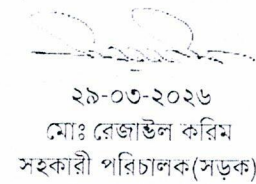 ২৯-০৩-২০২৬
মোঃ রেজাউল করিম
সহকারী পরিচালক(সড়ক)